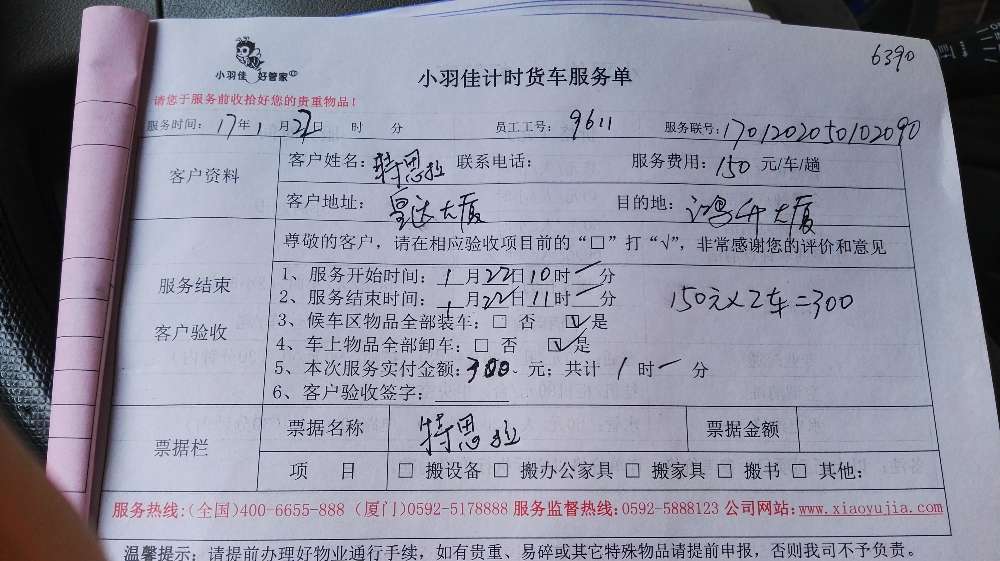 6390
小羽佳 好管家
小羽佳计时货车服务单
请您于服务前收拾好您的贵重物品！
服务时间：17年1月22日 时 分 员工工号：9611 服务联号：1701202050102090
客户资料
客户姓名：特思拉 联系电话： 服务费用：150 元/车/趟
客户地址：皇达大厦 目的地：鸿升大厦
尊敬的客户，请在相应验收项目前的“□”打“√”，非常感谢您的评价和意见
服务结束
客户验收
1、服务开始时间：1月22日10时一分
2、服务结束时间：1月22日11时一分
150元×2车=300
3、候车区物品全部装车：□ 否 ☑是
4、车上物品全部卸车：□ 否 ☑是
5、本次服务实付金额：300 元；共计 1 时一 分
6、客户验收签字：
票据栏
票据名称 特思拉 票据金额
项 目 □ 搬设备 □ 搬办公家具 □ 搬家具 □ 搬书 □ 其他：
服务热线：(全国)400-6655-888 (厦门)0592-5178888 服务监督热线：0592-5888123 公司网站：www.xiaoyujia.com
温馨提示：请提前办理好物业通行手续，如有贵重、易碎或其它特殊物品请提前申报，否则我司不予负责。